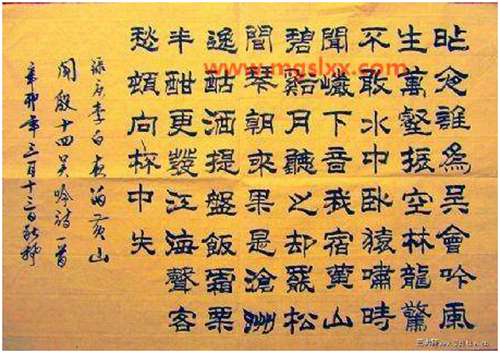 昨夜誰為吳會吟風
生萬壑振空林龍驚
不敢水中卧猿嘯時
聞巖下音我宿黃山
碧谿月聽之却罷松
間琴朝來果是滄洲
逸酤酒提盤飯霜栗
半酣更發江海聲客
愁頓向杯中失
錄唐李白夜泊黃山
聞殷十四吳吟詩一首
辛卯年三月十三日
www.mgslxx.com